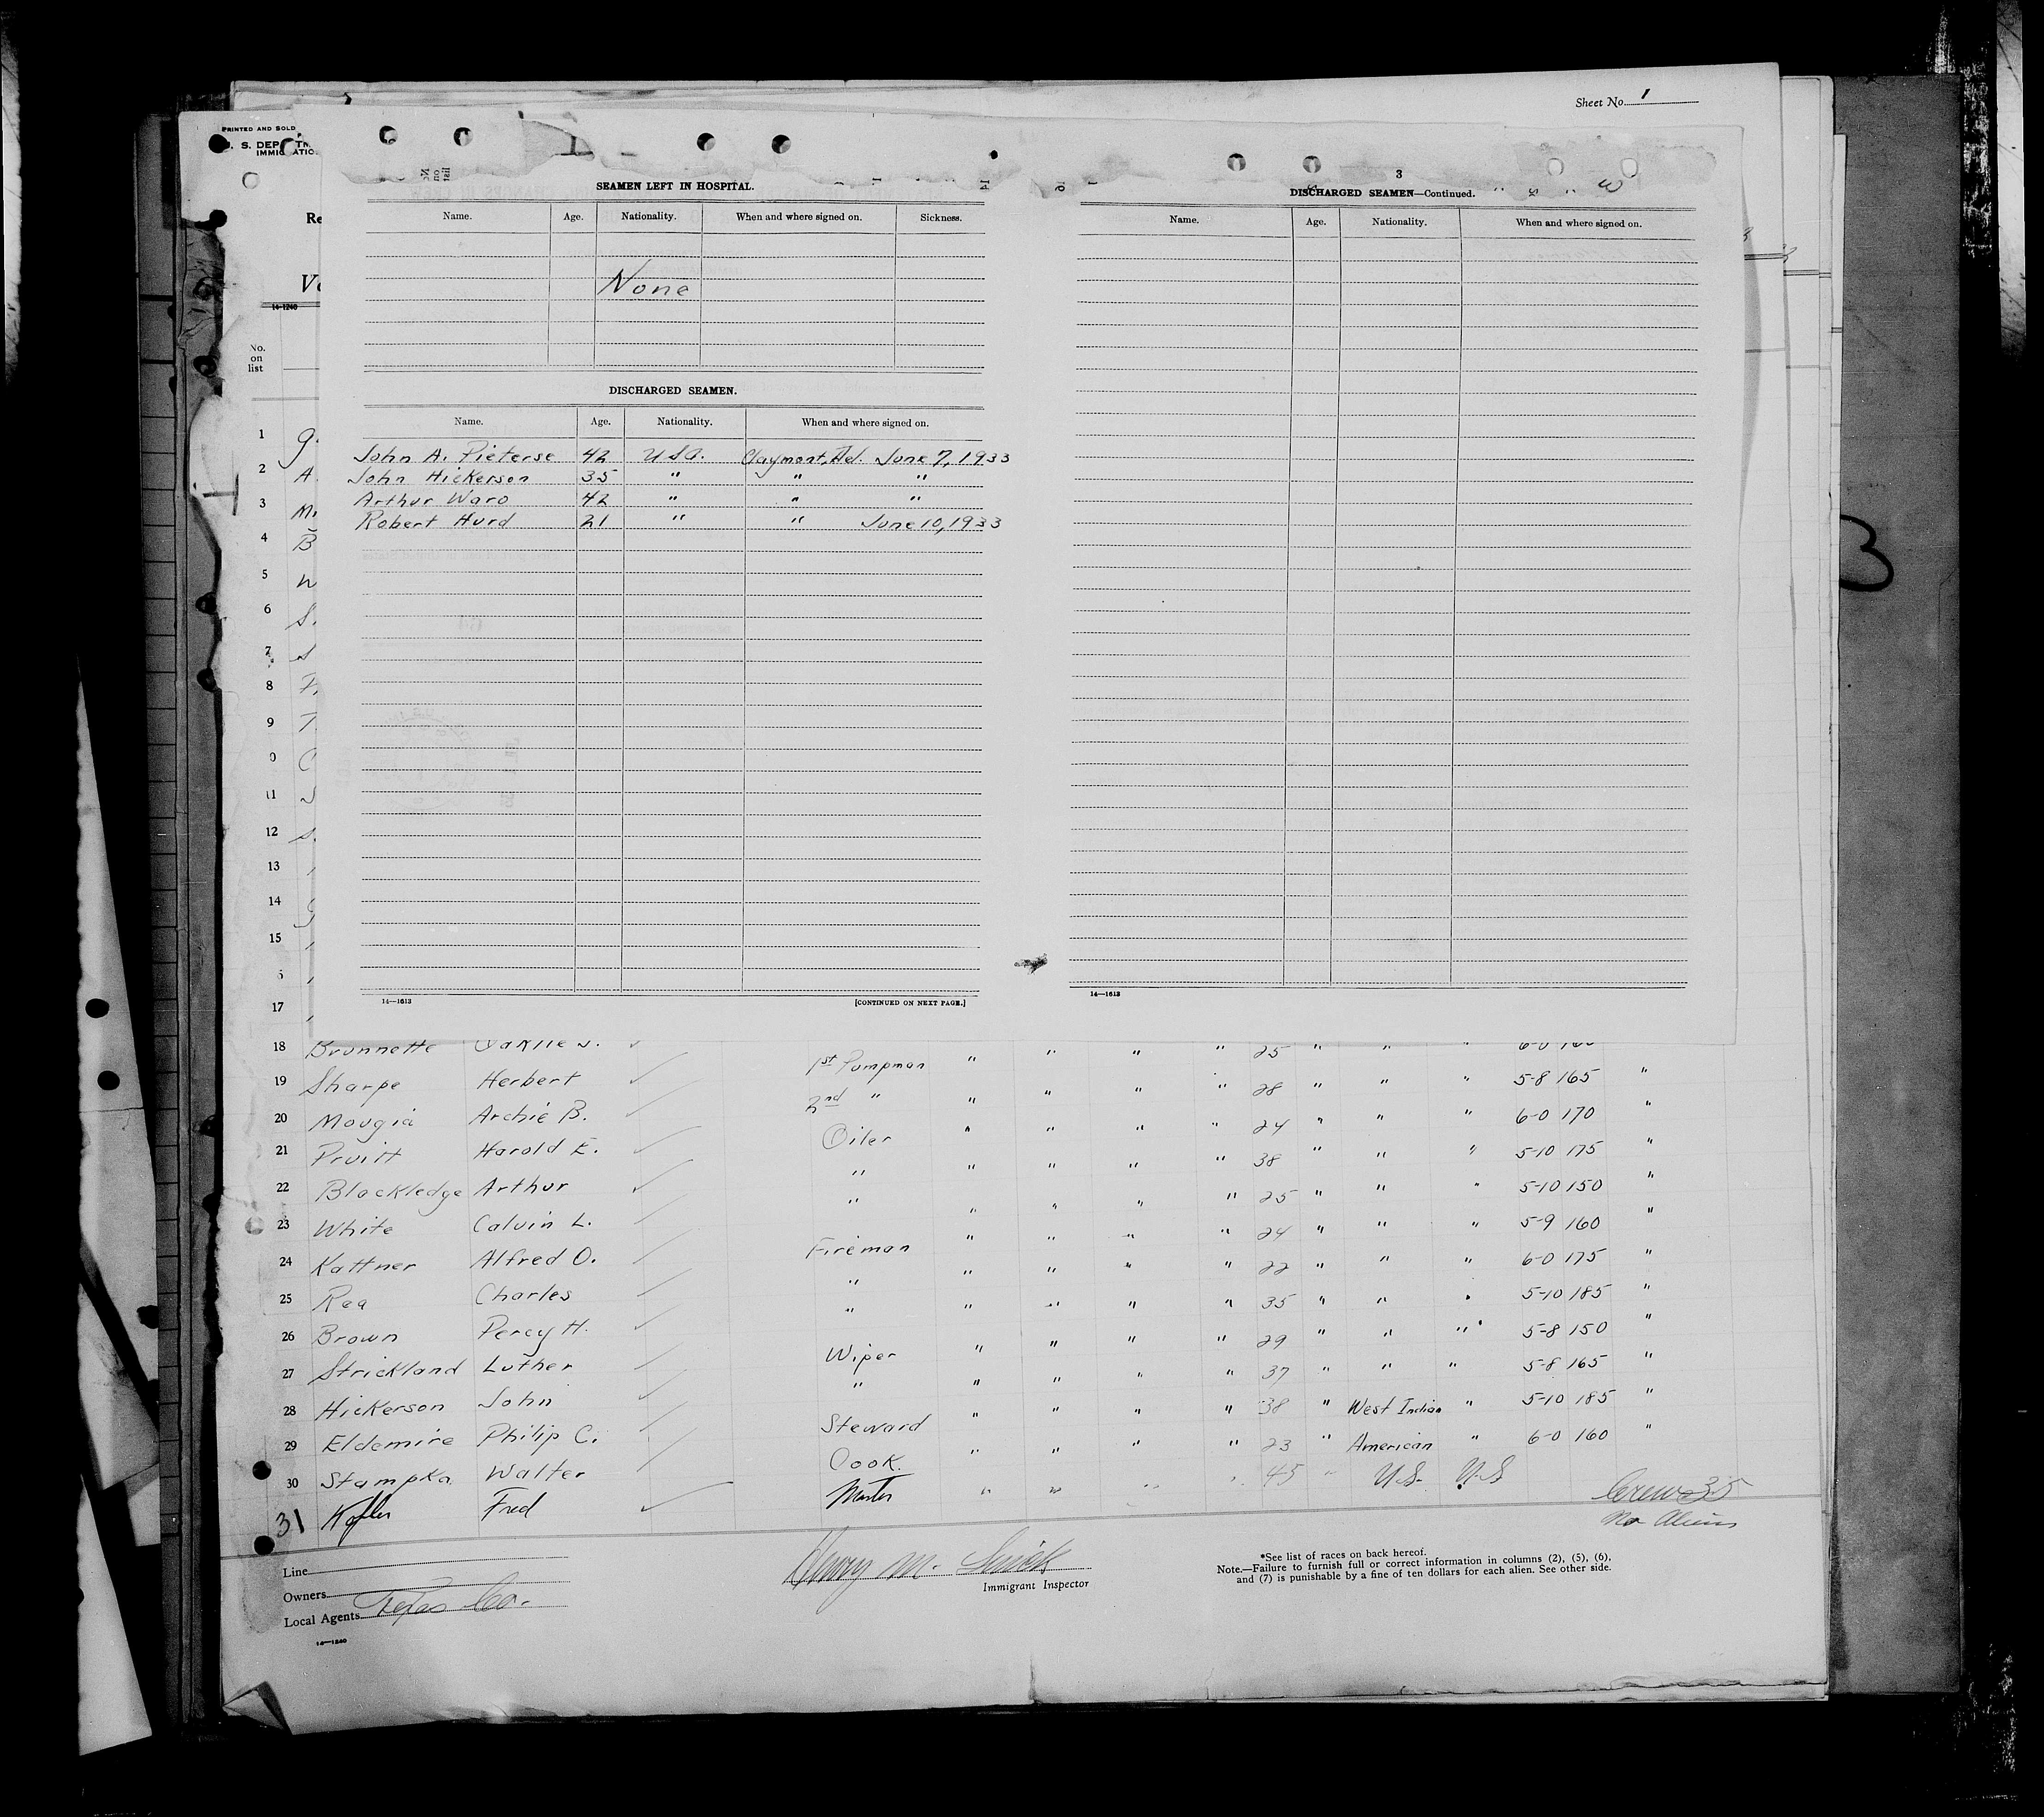 Sheet No. 1
PRINTED AND SOLD
U. S. DEP
IMMIG ATIO
Re
14-1240
No.
on
list
SEAMEN LEFT IN HOSPITAL.
Name. Age. Nationality. When and where signed on. Sickness.
None
DISCHARGED SEAMEN.
Name. Age. Nationality. When and where signed on.
John A. Pieterse 42 USA. Claymont, Del. June 7, 1933
John Hickerson 35 " " "
Arthur Ward 42 " " "
Robert Hurd 21 " " June 10, 1933
14—1613 [CONTINUED ON NEXT PAGE.]
3
DISCHARGED SEAMEN—Continued.
Name. Age. Nationality. When and where signed on.
14—1613
1
2 A.
3 M.
4 B
5 W
6 S.
7
8
9 T.
0 C
11
12 S.
13
14
15
6
17
18 Brunnette Oaklie J. 1st Pumpman " " " " 25 " " "
19 Sharpe Herbert 2nd " " " " " 28 " " " 5-8 165 "
20 Mougia Archie B. Oiler " " " " 24 " " " 6-0 170 "
21 Pruitt Harold E. " " " " " 38 " " " 5-10 175 "
22 Blackledge Arthur " " " " " 25 " " " 5-10 150 "
23 White Calvin L. Fireman " " " " 24 " " " 5-9 160 "
24 Kattner Alfred O. " " " " " 22 " " " 6-0 175 "
25 Rea Charles " " " " " 35 " " " 5-10 185 "
26 Brown Percy H. Wiper " " " " 29 " " " 5-8 150 "
27 Strickland Luther " " " " " 37 " " " 5-8 165 "
28 Hickerson John Steward " " " " 38 " West Indian " 5-10 185 "
29 Eldemire Philip C. Cook. " " " " 23 " American " 6-0 160 "
30 Stampka Walter Master " " " " 45 " U.S. U.S
31 Fred
Crew 35
No Aliens
Line
Owners
Local Agents Texas Co.
14—1240
Henry M.
Immigrant Inspector
*See list of races on back hereof.
Note.—Failure to furnish full or correct information in columns (2), (5), (6),
and (7) is punishable by a fine of ten dollars for each alien. See other side.
3